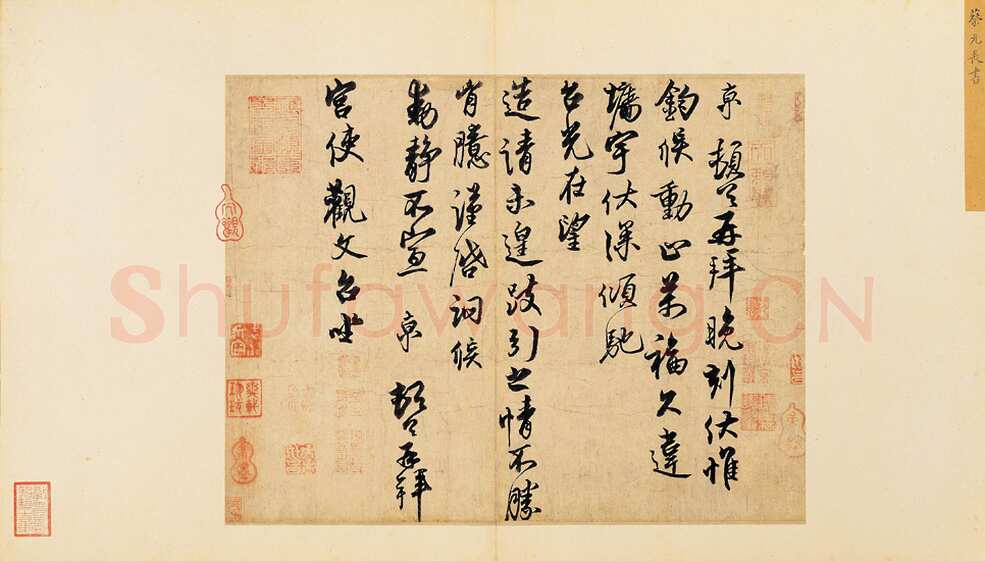 蔡元長書
京頓首再拜晚刻伏惟
鈞候動止萬福久違
墉宇伏深傾馳
台光在望
造請未遑跂引之情不勝
胷臆謹啓詗候
動靜不宣京頓首再拜
宮使觀文台坐
Shufawang.CN